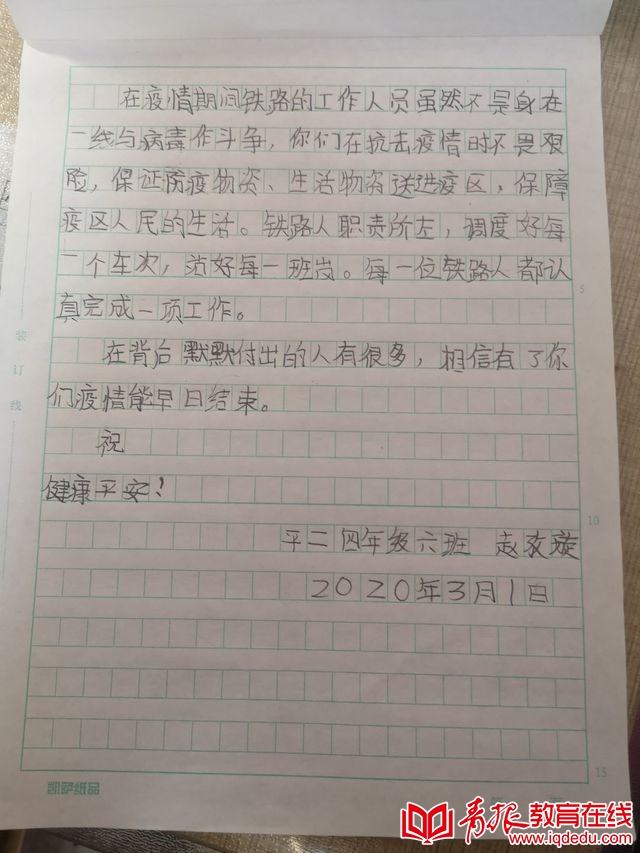 在疫情期间铁路的工作人员虽然不是身在
一线与病毒作斗争,你们在抗击疫情时不畏艰
险,保证防疫物资、生活物资送进疫区,保障
疫区人民的生活。铁路人职责所在,调度好每
一个车次,站好每一班岗。每一位铁路人都认
真完成一项工作。
在背后默默付出的人有很多,相信有了你
们疫情能早日结束。
祝
健康平安!
平二四年级六班 赵
2020年3月1日
装订线
5
10
15
凯萨纸品
青报教育在线
www.iqdedu.com